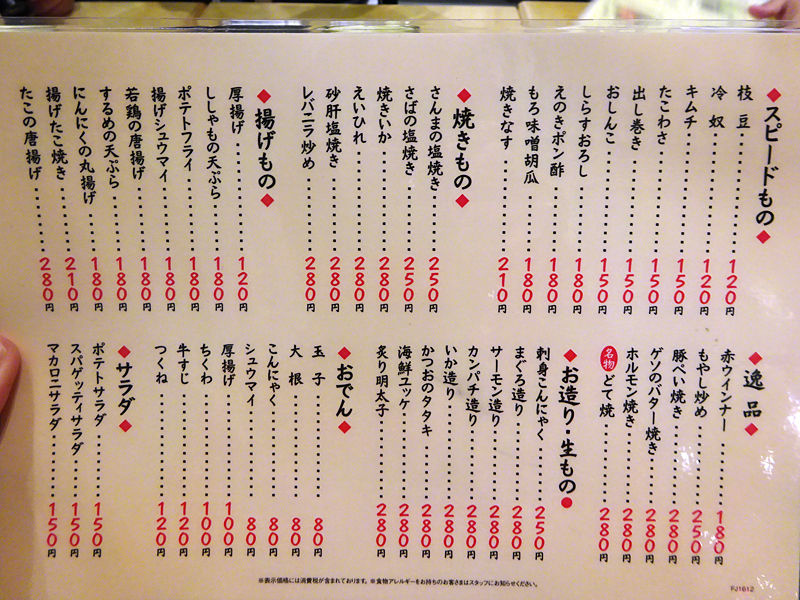 ◆スピードもの◆
枝豆・・・・・・・・120円
冷奴・・・・・・・・120円
キムチ・・・・・・・・150円
たこわさ・・・・・・・・150円
出し巻き・・・・・・・・150円
おしんこ・・・・・・・・150円
しらすおろし・・・・・・・・180円
えのきポン酢・・・・・・・・180円
もろ味噌胡瓜・・・・・・・・180円
焼きなす・・・・・・・・210円
◆焼きもの◆
さんまの塩焼き・・・・・・250円
さばの塩焼き・・・・・・250円
焼きいか・・・・・・・・280円
えいひれ・・・・・・・・280円
砂肝塩焼き・・・・・・・・280円
レバニラ炒め・・・・・・・・280円
◆揚げもの◆
厚揚げ・・・・・・・・120円
ししゃもの天ぷら・・・・・・180円
ポテトフライ・・・・・・・・180円
揚げシュウマイ・・・・・・180円
若鶏の唐揚げ・・・・・・180円
するめの天ぷら・・・・・・180円
にんにくの丸揚げ・・・・・・180円
揚げたこ焼き・・・・・・210円
たこの唐揚げ・・・・・・280円
逸品◆
赤ウインナー・・・・・・180円
もやし炒め・・・・・・・・250円
豚ぺい焼き・・・・・・・・280円
ゲソのバター焼き・・・・・・280円
ホルモン焼き・・・・・・・・280円
名物どて焼・・・・・・・・280円
◆お造り・生もの●
刺身こんにゃく・・・・・・250円
まぐろ造り・・・・・・・・280円
サーモン造り・・・・・・280円
カンパチ造り・・・・・・280円
いか造り・・・・・・・・280円
かつおのタタキ・・・・・・280円
海鮮ユッケ・・・・・・・・280円
炙り明太子・・・・・・・・280円
◆おでん◆
玉子・・・・・・・・80円
大根・・・・・・・・80円
こんにゃく・・・・・・・・80円
シュウマイ・・・・・・・・80円
厚揚げ・・・・・・・・100円
ちくわ・・・・・・・・100円
牛すじ・・・・・・・・120円
つくね・・・・・・・・120円
◆サラダ◆
ポテトサラダ・・・・・・150円
スパゲッティサラダ・・・・150円
マカロニサラダ・・・・・・150円
※表示価格には消費税が含まれております。※食物アレルギーをお持ちのお客さまはスタッフにお知らせください。
FJ1612